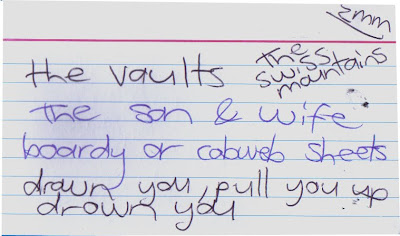 2mm
the vaults
the swiss mountains
the son & wife
boardy or cobweb sheets
drawn you, pull you up
drown you